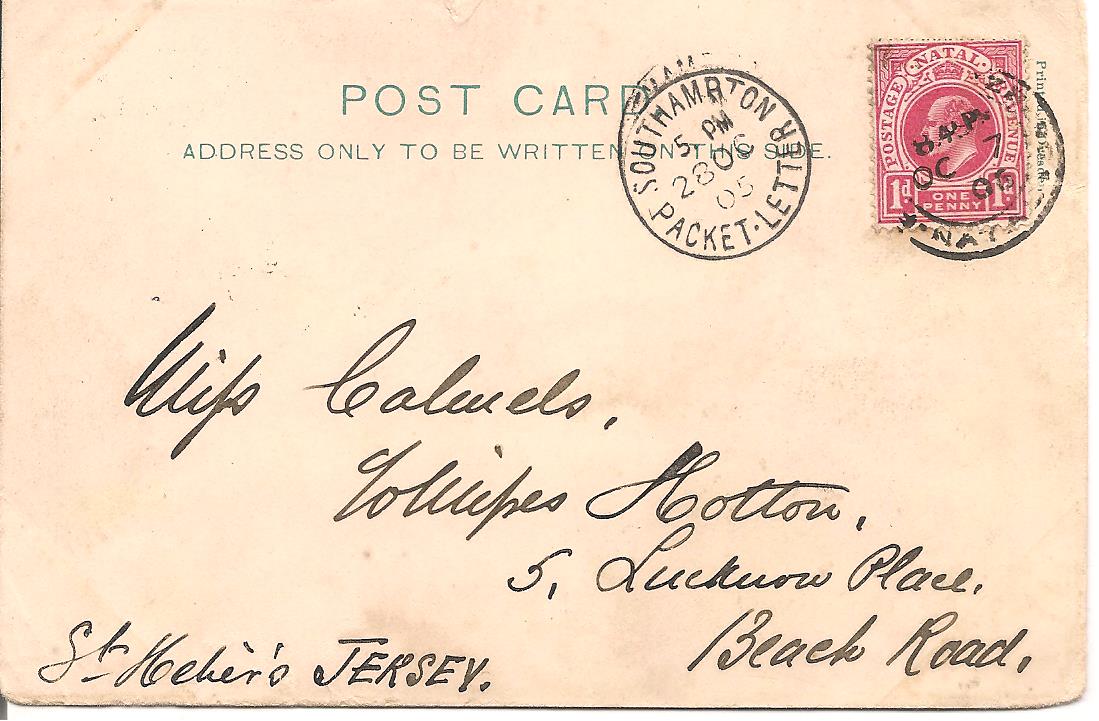 POST CARD
ADDRESS ONLY TO BE WRITTEN ON THIS SIDE.
SOUTHAMPTON PACKET·LETTER
5 PM
28 OC
05
NATAL
POSTAGE REVENUE
1d. ONE PENNY 1d.
OC 7
05
NATAL
Miss Calmels,
Hotton,
5, Lucknow Place,
Beach Road,
St Helier's JERSEY.